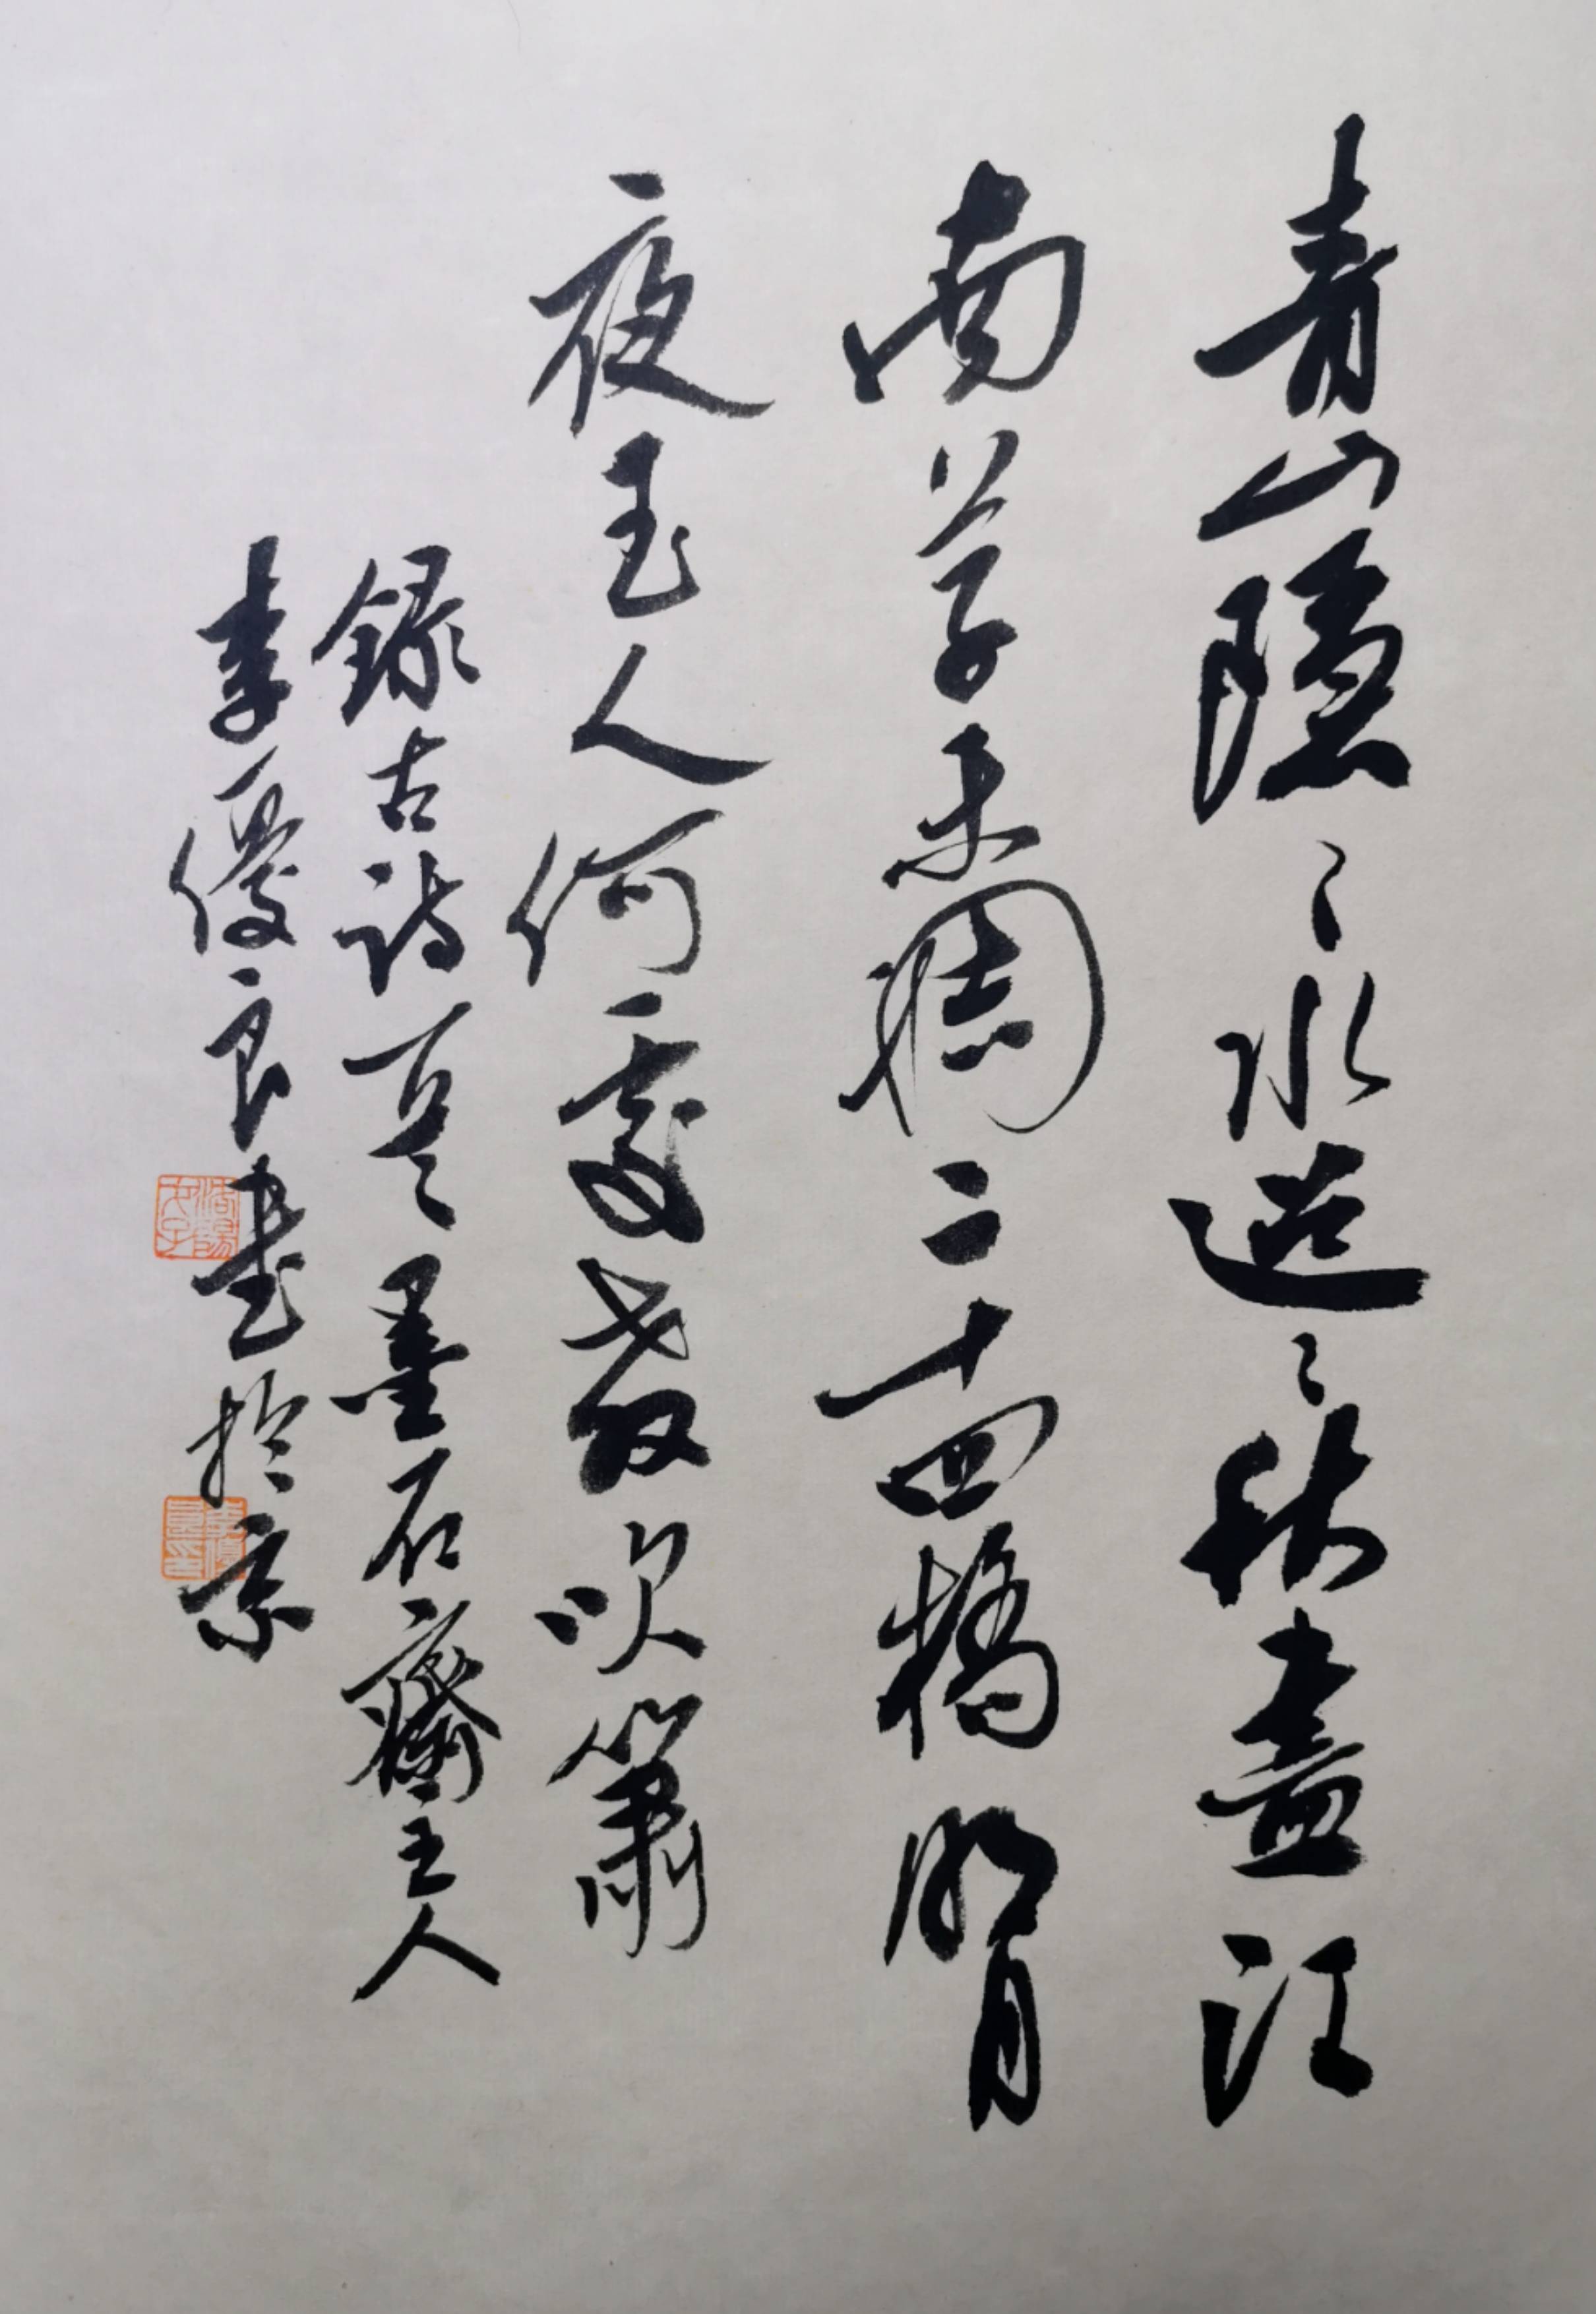 青山隱〻水迢〻秋盡江
南草未凋二十四橋明月
夜玉人何處教吹簫
録古詩墨石齋主人
李優良書於京